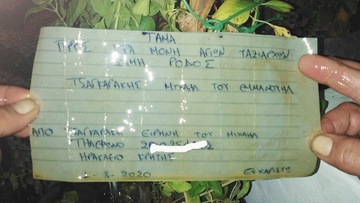 ΤΑΜΑ
ΠΡΟΣ ΙΕΡΑ ΜΟΝΗ ΑΓΙΩΝ ΤΑΞΙΑΡΧΩΝ
ΣΥΜΗ ΡΟΔΟΣ
ΤΣΑΓΚΑΡΑΚΗΣ ΜΙΧΑΗΛ ΤΟΥ ΕΜΜΑΝΟΥΗΛ
ΑΠΟ ΤΣΑΓΚΑΡΑΚΗ ΕΙΡΗΝΗ ΤΟΥ ΜΙΧΑΗΛ
ΤΗΛΕΦΩΝΟ
ΗΡΑΚΛΕΙΟ ΚΡΗΤΗΣ
-3-2020 ΕΥΧΑΡΙΣΤΩ